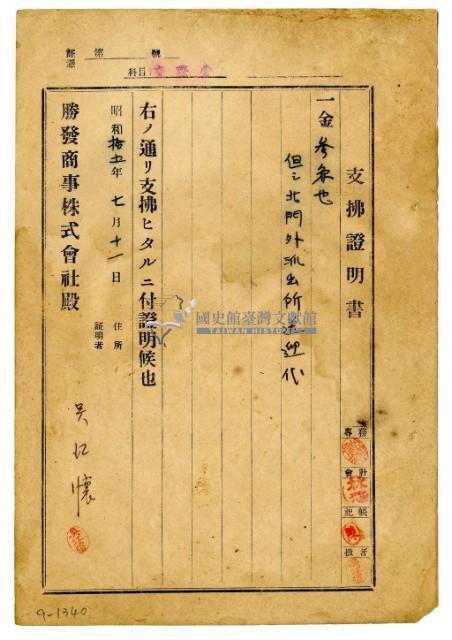 証憑 第 號
科目 交際費
支拂證明書
一金參円也
但シ北門外派出所送迎代
右ノ通リ支拂ヒタルニ付證明候也
昭和拾五年七月十一日
住所
証明者
吳江懷
勝發商事株式會社殿
專務
會計
記帳
扱者
國史館臺灣文獻館
TAIWAN HISTORICA
9-1340